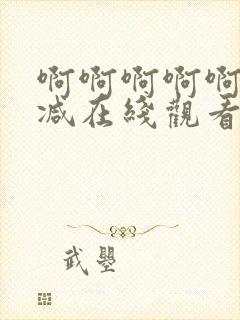 啊啊啊啊啊
减在綫觀看
武曌